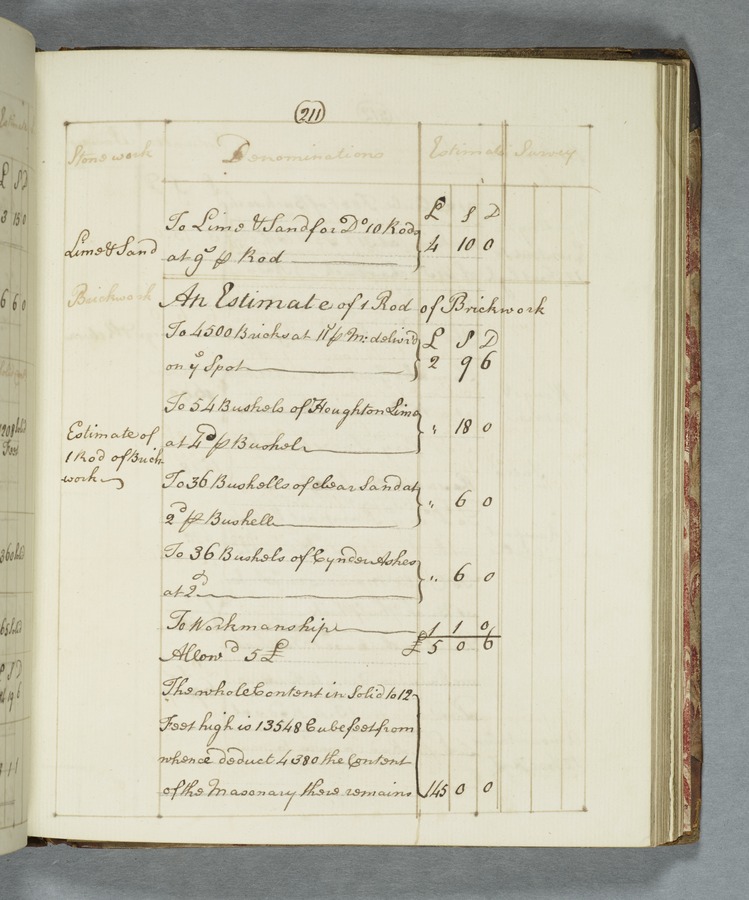 211
Stone work Denominations Estimate Survey
£ S D
To Lime & Sand for Do 10 Rods
Lime & Sand
at 9s p Rod 4 10 0
Brickwork An Estimate of 1 Rod of Brickwork
To 4500 Bricks at 11s p M: deliver'd £ S D
on ye Spot 2 9 6
To 54 Bushels of Heughton Lime
at 4d p Bushel " 18 0
Estimate of
1 Rod of Brick
work
To 36 Bushells of clear Sand at
2d p Bushell " 6 0
To 36 Bushels of Cynder Ashes
at 2d " 6 0
To Workmanship 1 1 0
Allow'd 5 £ £ 5 0 6
The whole Content in Solid to 12
Feet high is 13548 Cube feet from
whence deduct 4380 the Content
of the Masonary there remains 145 0 0